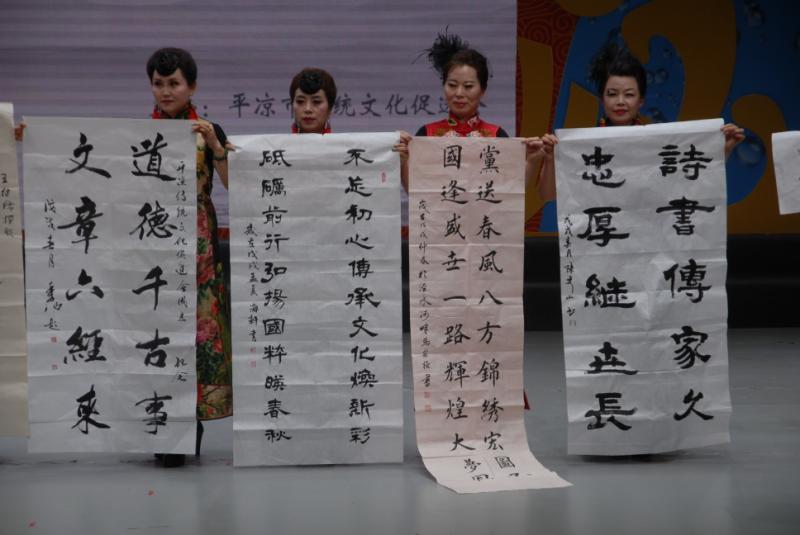 ：平凉市
统文化促进
道德千古事
文章六經來
不忘初心傳承文化煥新彩
砥礪前行弘揚國粹暎春秋
歲在戊戌孟夏海軒書
黨送春風八方錦绣宏圖
國逢盛世一路輝煌大夢圓
詩書傳家久
忠厚継世長